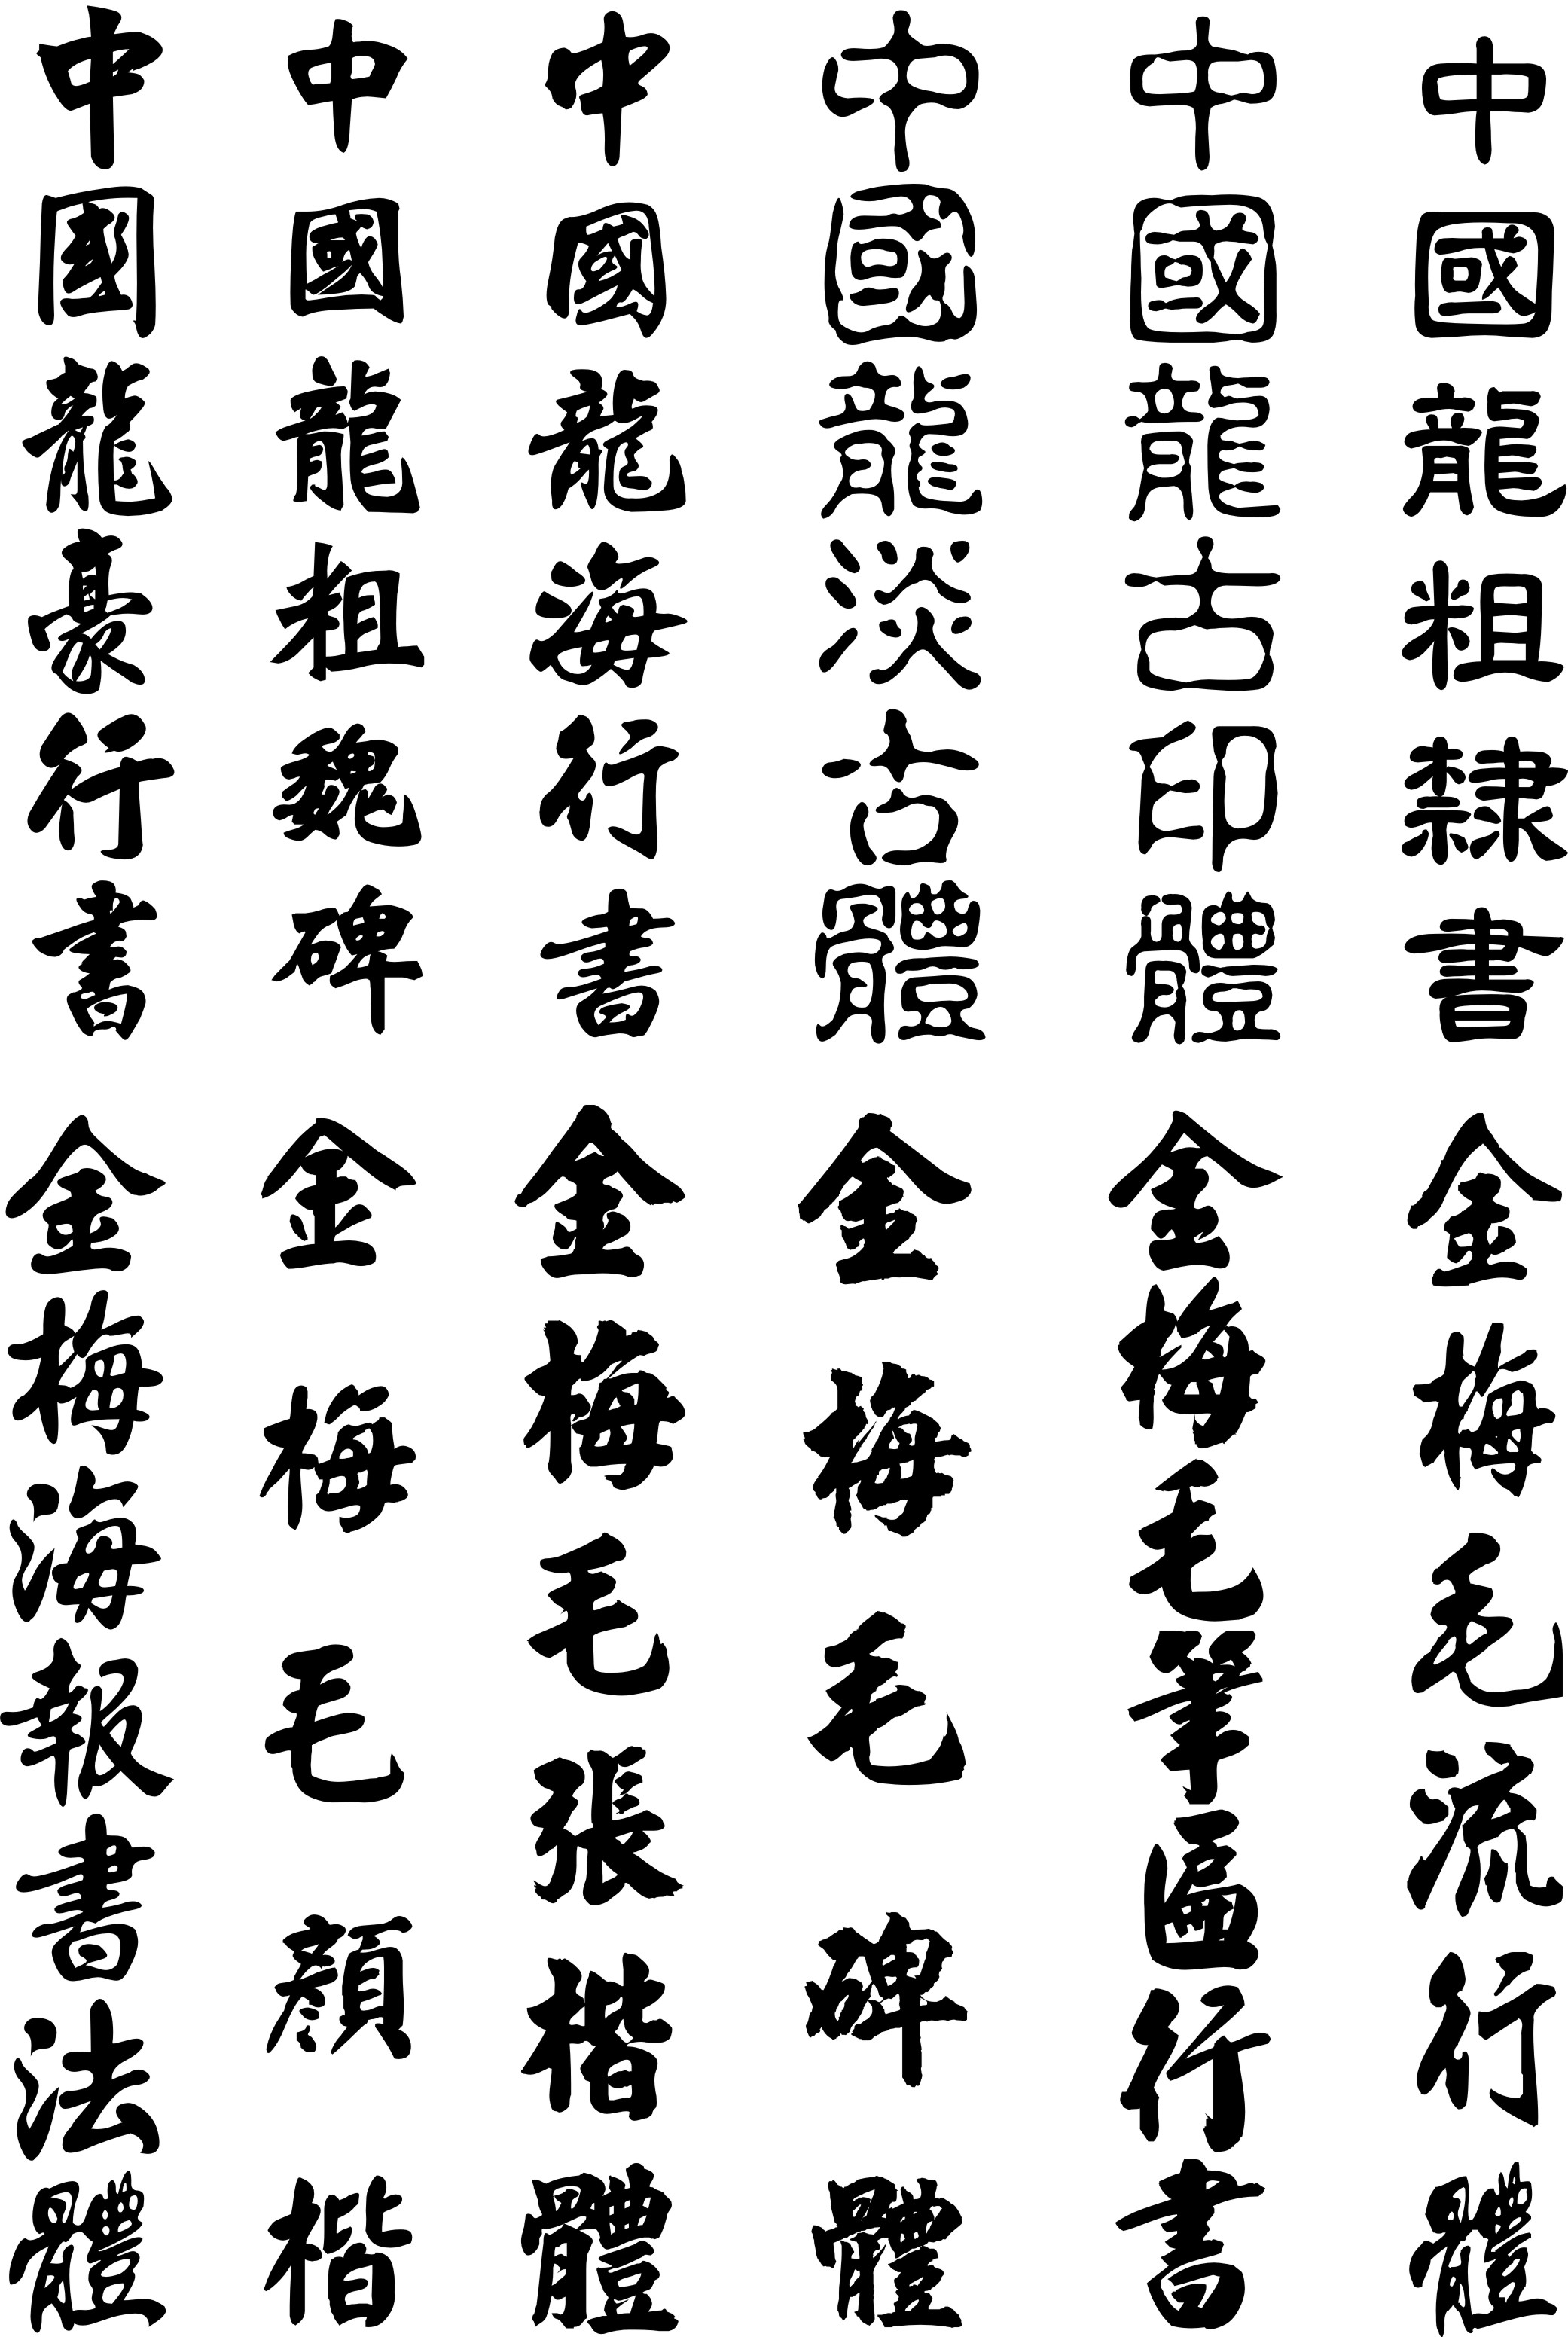 中國龍豪行書
中國龍粗魏碑
中國龍海行書
中國龍淡古體
中國龍古印體
中國龍粗隸書
金梅海報書法體
金梅毛顏楷
金梅毛張楷體
金梅毛碑體
金梅毛筆匾行書
金梅毛流行體